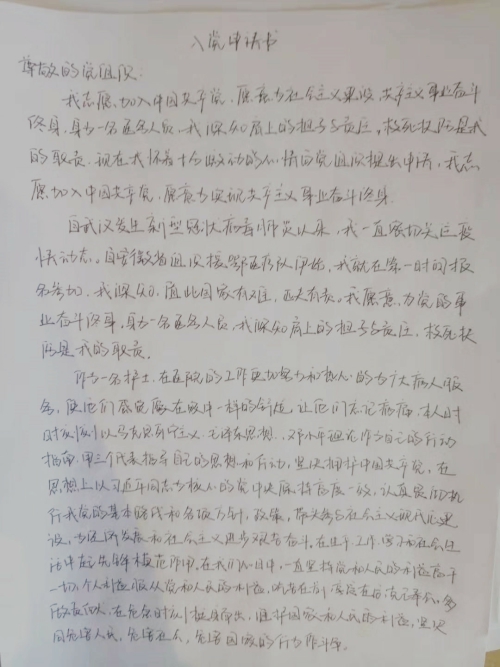 入党申请书
尊敬的党组织:
我志愿加入中国共产党,愿意为社会主义事业,共产主义事业奋斗
终身,身为一名医务人员,我深知肩上的担当与责任,救死扶伤是我
的职责。现在我怀着十分激动的心情向党组织提出申请,我志
愿加入中国共产党,愿意为实现共产主义事业奋斗终身.
自武汉发生新型冠状病毒肺炎以来,我一直密切关注着疫
情动态。自安徽省组织援鄂医疗队开始,我就在第一时间报
名参加。我深知.值此国家有难,匹夫有责。我愿意,为党的事
业奋斗终身,身为一名医务人员,我深知肩上的担当与责任,救死扶
伤是我的职责。
作为一名护士.在医院的工作更加努力和热心的为广大病人服
务,使他们感觉像在家中一样的舒适,让他们忘记病痛.本人时
时刻刻以马克思列宁主义.毛泽东思想.邓小平理论作为自己的行动
指南.用三个代表指导自己的思想和行动,坚决拥护中国共产党,在
思想上以习近平同志为核心的党中央保持高度一致,认真贯彻执
行我党的基本路线和各项方针,政策,带头参与社会主义现代化建
设,为经济发展和社会主义进步艰苦奋斗,在生产.工作.学习和社会生
活中起先锋模范作用,在我们心目中,一直坚持党和人民的利益高于
一切,个人利益服从党和人民的利益,吃苦在前,享受在后,克己奉公,多
做贡献.在危急时刻挺身而出,维护国家和人民的利益,坚决
同危害人民,危害社会,危害国家的行为作斗争。